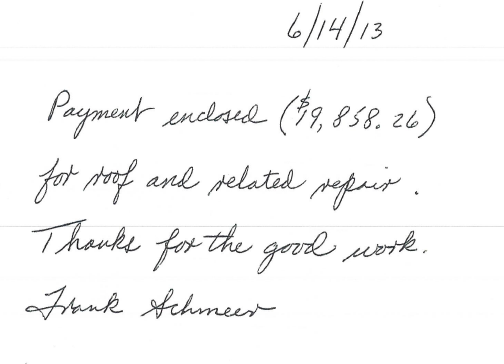 6/14/13
Payment enclosed ($19,858.26)
for roof and related repair.
Thanks for the good work.
Frank Schmeer